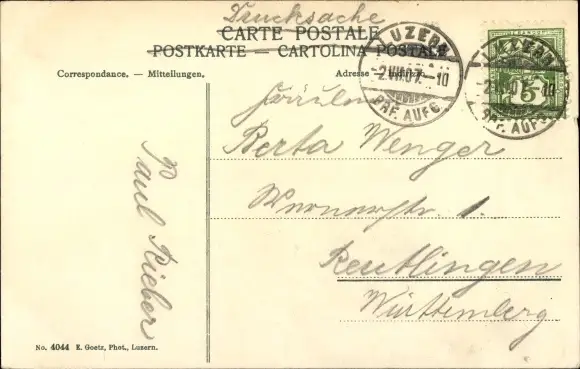 Drucksache
CARTE POSTALE
POSTKARTE — CARTOLINA POSTALE
Correspondance. — Mitteilungen.
Adresse — Indirizzo.
LUZERN
-2.VII.07.-10
BRF. AUFG.
LUZERN
-2.VII.07.-10
BRF. AUFG.
5
Fräulein
Berta Wenger
1.
Reutlingen
Württemberg
Paul Rieber
No. 4044 E. Goetz, Phot., Luzern.